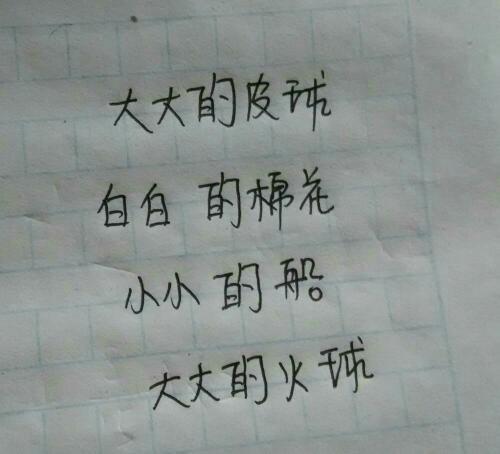 大大的皮球
白白的棉花
小小的船
大大的火球